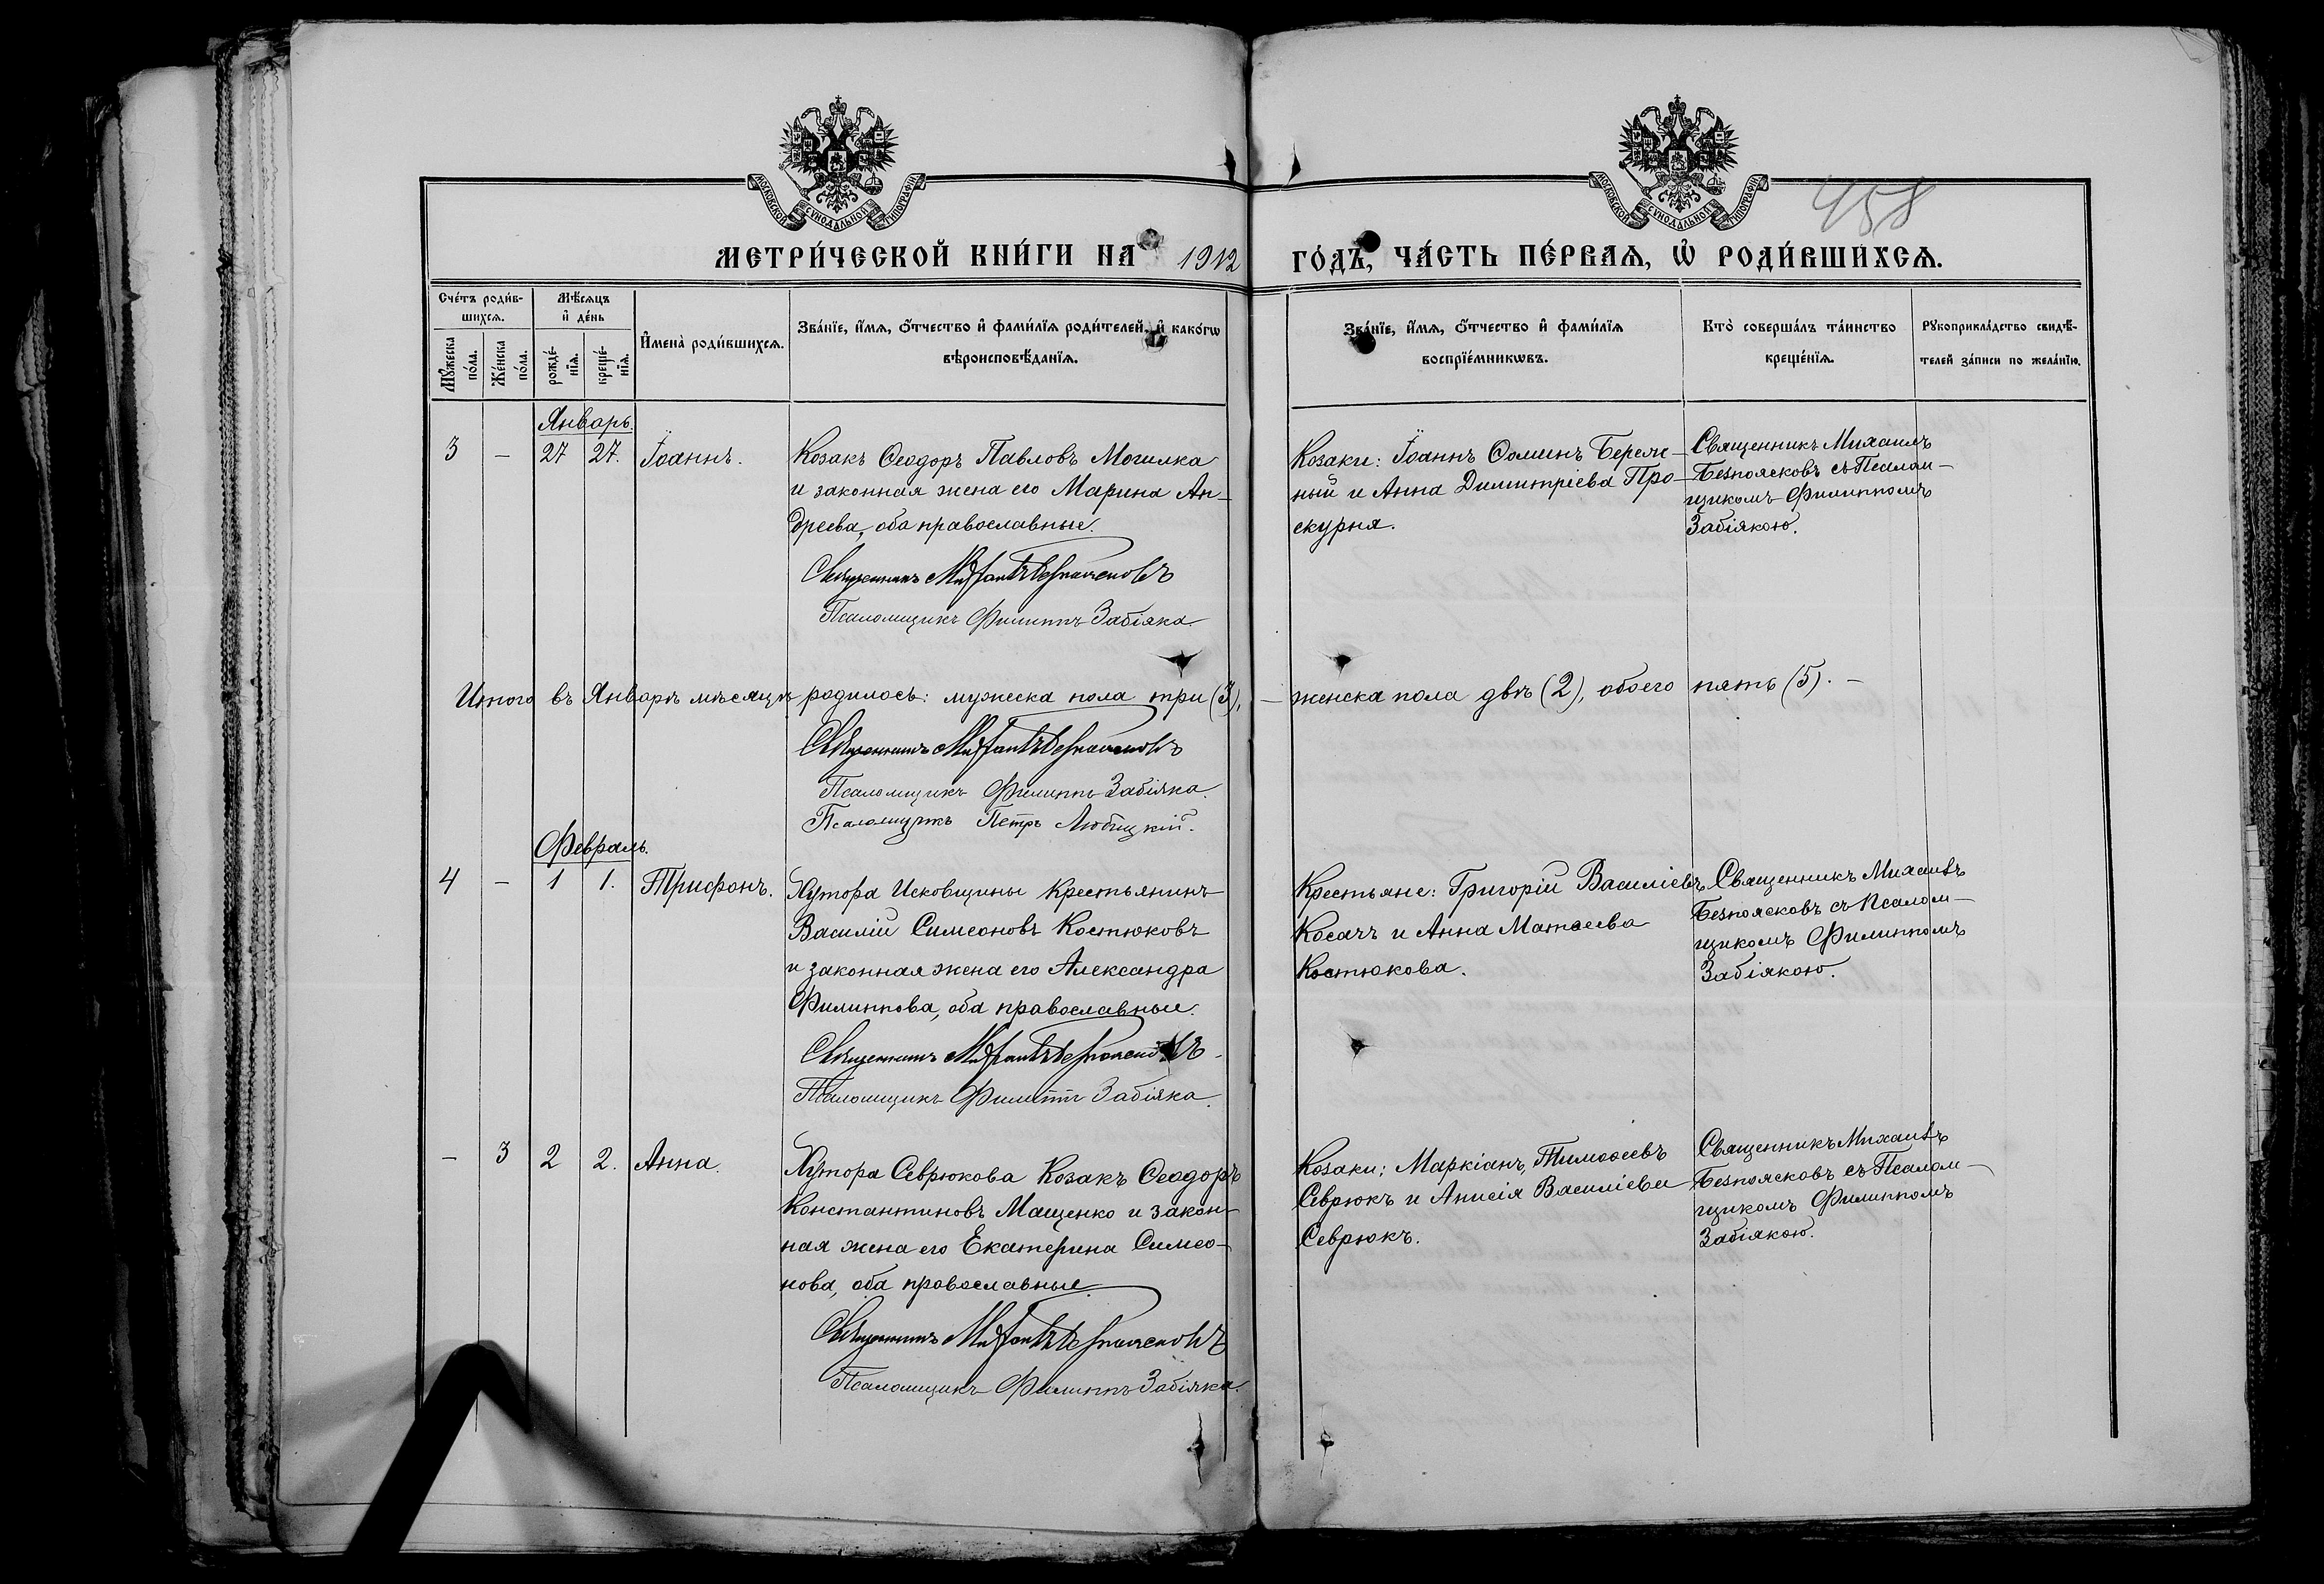 МОСКОВСКОЙ СѴНОДАЛЬНОЙ ТИПОГРАФІИ
МОСКОВСКОЙ СѴНОДАЛЬНОЙ ТИПОГРАФІИ
458
МЕТРИ́ЧЕСКОЙ КНИ́ГИ НА 1912 ГО́ДЪ, ЧА́СТЬ ПЕ́РВАѦ, Ѡ҆ РОДИ́ВШИХСѦ.
Сче́тъ роди́в-
шихсѧ.
Мꙋ́жеска по́ла.
Же́нска по́ла.
Мѣ́сѧцъ
и҆ де́нь
рожде́-нїѧ.
креще́-нїѧ.
И҆мена̀ роди́вшихсѧ.
Зва́нїе, и҆́мѧ, ѻ҆́тчество и҆ фами́лїѧ роди́телей, и҆ како́гѡ
вѣроисповѣ́данїѧ.
Зва́нїе, и҆́мѧ, ѻ҆́тчество и҆ фами́лїѧ
воспрїе́мникѡвъ.
Кто̀ соверша́лъ та́инство
креще́нїѧ.
Рꙋкоприкла́дство свидѣ́-
телей за́писи по жела́нїю.
Январь.
3 — 27 27. Іоаннъ.
Козакъ Ѳеодоръ Павловъ Могилка
и законная жена его Марина Ан-
дреева, оба православные.
Священникъ Михаилъ Безпоясковъ
Псаломщикъ Филиппъ Забіяка
Козаки: Іоаннъ Ѳоминъ Береж-
ный и Анна Димитріева Про-
скурня.
Священникъ Михаилъ
Безпоясковъ съ Псалом-
щикомъ Филиппомъ
Забіякою.
Итого въ Январѣ мѣсяцѣ родилось: мужеска пола три (3), — женска пола двѣ (2), обоего пять (5). —
Священникъ Михаилъ Безпоясковъ
Псаломщикъ Филиппъ Забіяка.
Псаломщикъ Петръ Любицкій.
Февраль.
4 — 1 1. Трифонъ.
Хутора Исковщины Крестьянинъ
Василій Симеоновъ Костюковъ
и законная жена его Александра
Филиппова, оба православные.
Священникъ Михаилъ Безпоясковъ
Псаломщикъ Филиппъ Забіяка.
Крестьяне: Григорій Василіевъ
Косачъ и Анна Матѳеева
Костюкова.
Священникъ Михаилъ
Безпоясковъ съ Псалом-
щикомъ Филиппомъ
Забіякою.
— 3 2 2. Анна.
Хутора Севрюкова Козакъ Ѳеодоръ
Константиновъ Мащенко и закон-
ная жена его Екатерина Симео-
нова, оба православные
Священникъ Михаилъ Безпоясковъ
Псаломщикъ Филиппъ Забіяка.
Козаки; Маркіанъ, Тимоѳеевъ
Севрюкъ и Анисія Василіева
Севрюкъ.
Священникъ Михаилъ
Безпоясковъ съ Псалом-
щикомъ Филиппомъ
Забіякою.